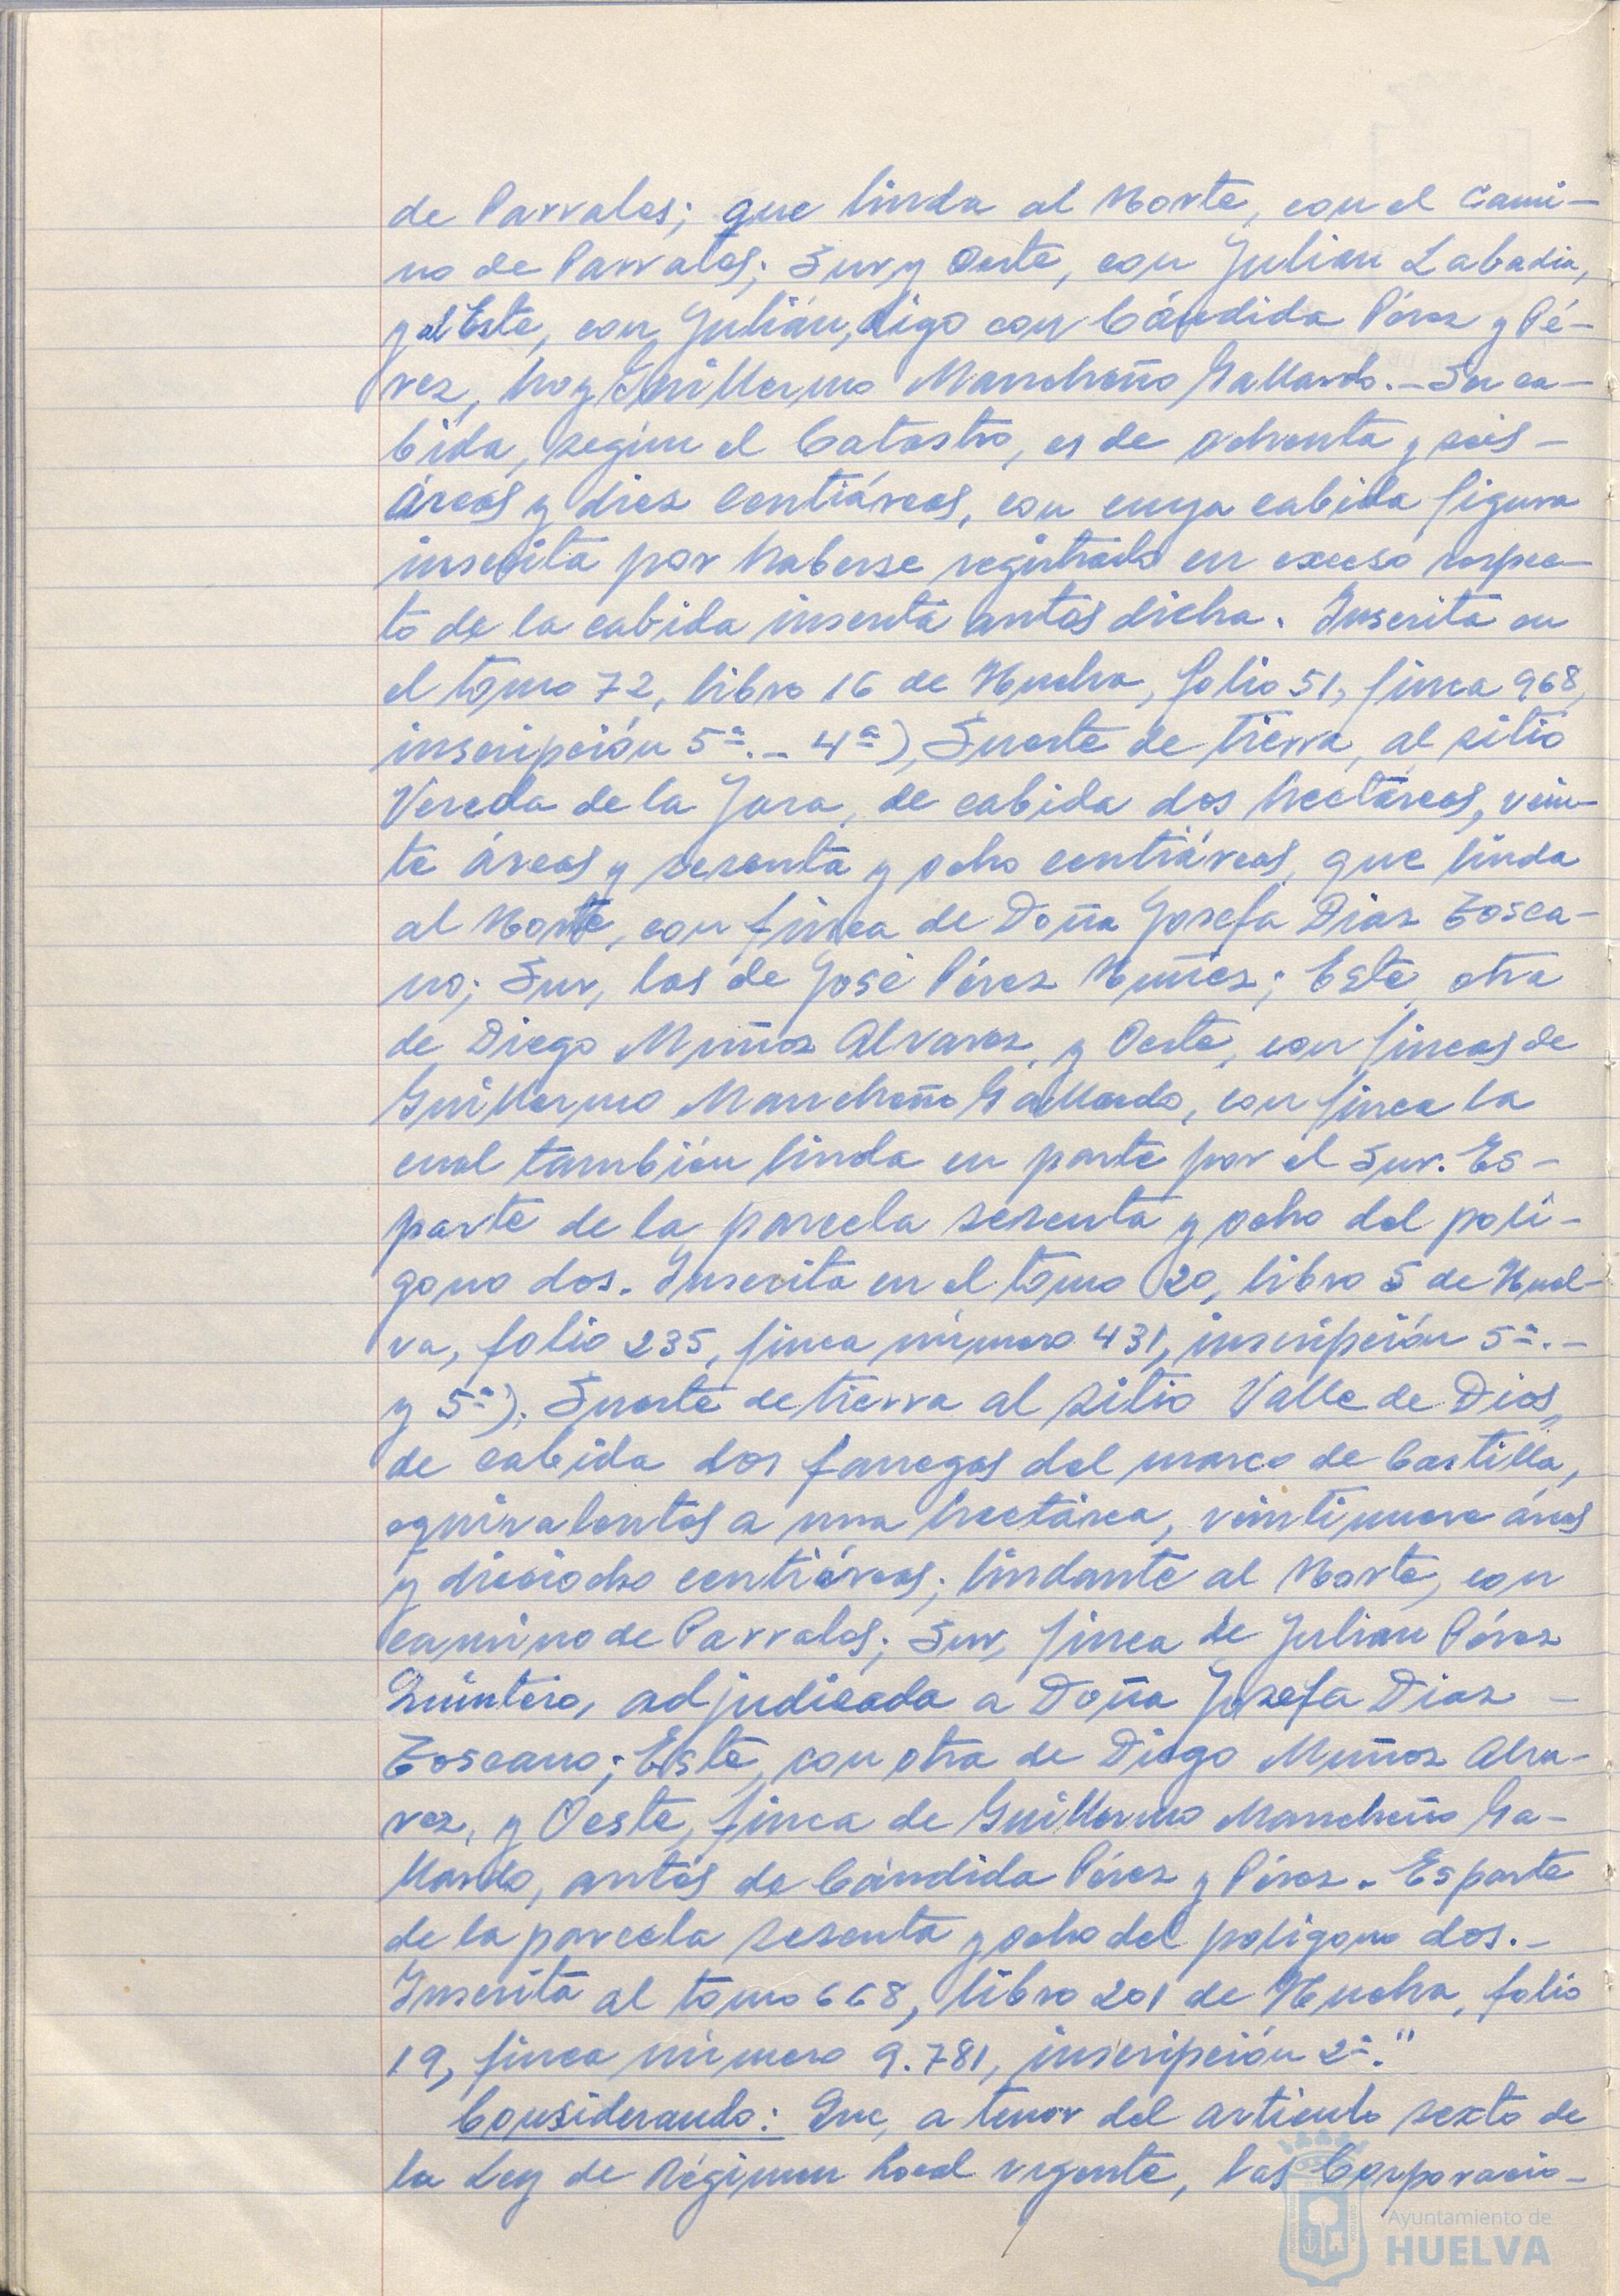 de Parrales; que linda al Norte, con el Cami-
no de Parrales; Sur y Oeste, con Julian Labadia,
y al Este, con Julián, digo con Cándida Pérez y Pé-
rez, hoy Guillermo Mancheño Gallardo.- Su ca-
bida, según el Catastro, es de ochenta y seis-
áreas y diez centiáreas, con cuya cabida figura
inscrita por haberse registrado en exceso respec-
to de la cabida inscrita antes dicha. Inscrita en
el tomo 72, libro 16 de Huelva, folio 51, finca 968,
inscripción 5ª.- 4ª), Suerte de tierra, al sitio
Vereda de la Jara, de cabida dos hectáreas, vein-
te áreas y sesenta y ocho centiáreas, que linda
al Norte, con finca de Doña Josefa Diaz Tosca-
no; Sur, las de José Pérez Muñez; Este, otra
de Diego Muñoz Alvarez, y Oeste, con fincas de
Guillermo Mancheño Gallardo, con finca la
cual también linda en parte por el Sur. Es-
parte de la parcela sesenta y ocho del polí-
gono dos. Inscrita en el tomo 20, libro 5 de Huel-
va, folio 235, finca número 431, inscripción 5ª.-
y 5ª). Suerte de tierra al sitio Valle de Dios,
de cabida dos fanegas del marco de Castilla,
equivalentes a una hectárea, veintinueve áreas
y dieciocho centiáreas; lindante al Norte, con
camino de Parrales; Sur, finca de Julian Pérez
Quintero, adjudicada a Doña Josefa Diaz -
Toscano; Este, con otra de Diego Muñoz Alva-
rez, y Oeste, finca de Guillermo Mancheño Ga-
llardo, antes de Cándida Pérez y Pérez. Es parte
de la parcela sesenta y ocho del poligono dos.-
Inscrita al tomo 668, libro 201 de Huelva, folio
19, finca número 9.781, inscripción 2ª."
Considerando: Que, a tenor del articulo sexto de
la Ley de Régimen Local vigente, las Corporacio-
Ayuntamiento de
HUELVA